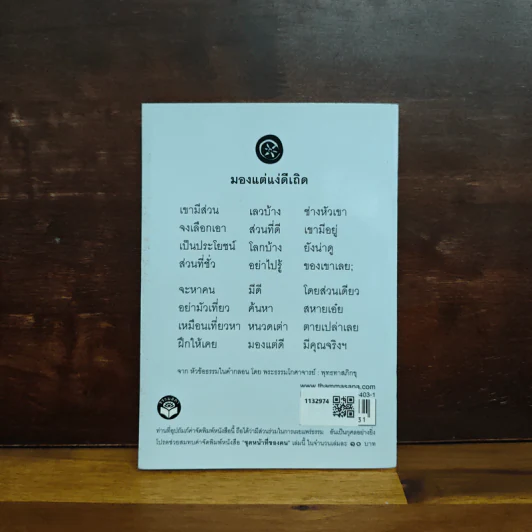 มองแต่แง่ดีเถิด
เขามีส่วน เลวบ้าง ช่างหัวเขา
จงเลือกเอา ส่วนที่ดี เขามีอยู่
เป็นประโยชน์ โลกบ้าง ยังน่าดู
ส่วนที่ชั่ว อย่าไปรู้ ของเขาเลย;
จะหาคน มีดี โดยส่วนเดียว
อย่ามัวเที่ยว ค้นหา สหายเอ๋ย
เหมือนเที่ยวหา หนวดเต่า ตายเปล่าเลย
ฝึกให้เคย มองแต่ดี มีคุณจริงฯ
จาก หัวข้อธรรมในคำกลอน โดย พระธรรมโกศาจารย์ : พุทธทาสภิกขุ
www.thammasapa.com
403-1
1132974
ท่านที่อุปถัมภ์ค่าจัดพิมพ์หนังสือนี้ ถือได้ว่ามีส่วนร่วมในการเผยแพร่ธรรม อันเป็นกุศลอย่างยิ่ง
โปรดช่วยสมทบค่าจัดพิมพ์หนังสือ "ชุดหน้าที่ของคน" เล่มนี้ ในจำนวนเล่มละ ๑๐ บาท